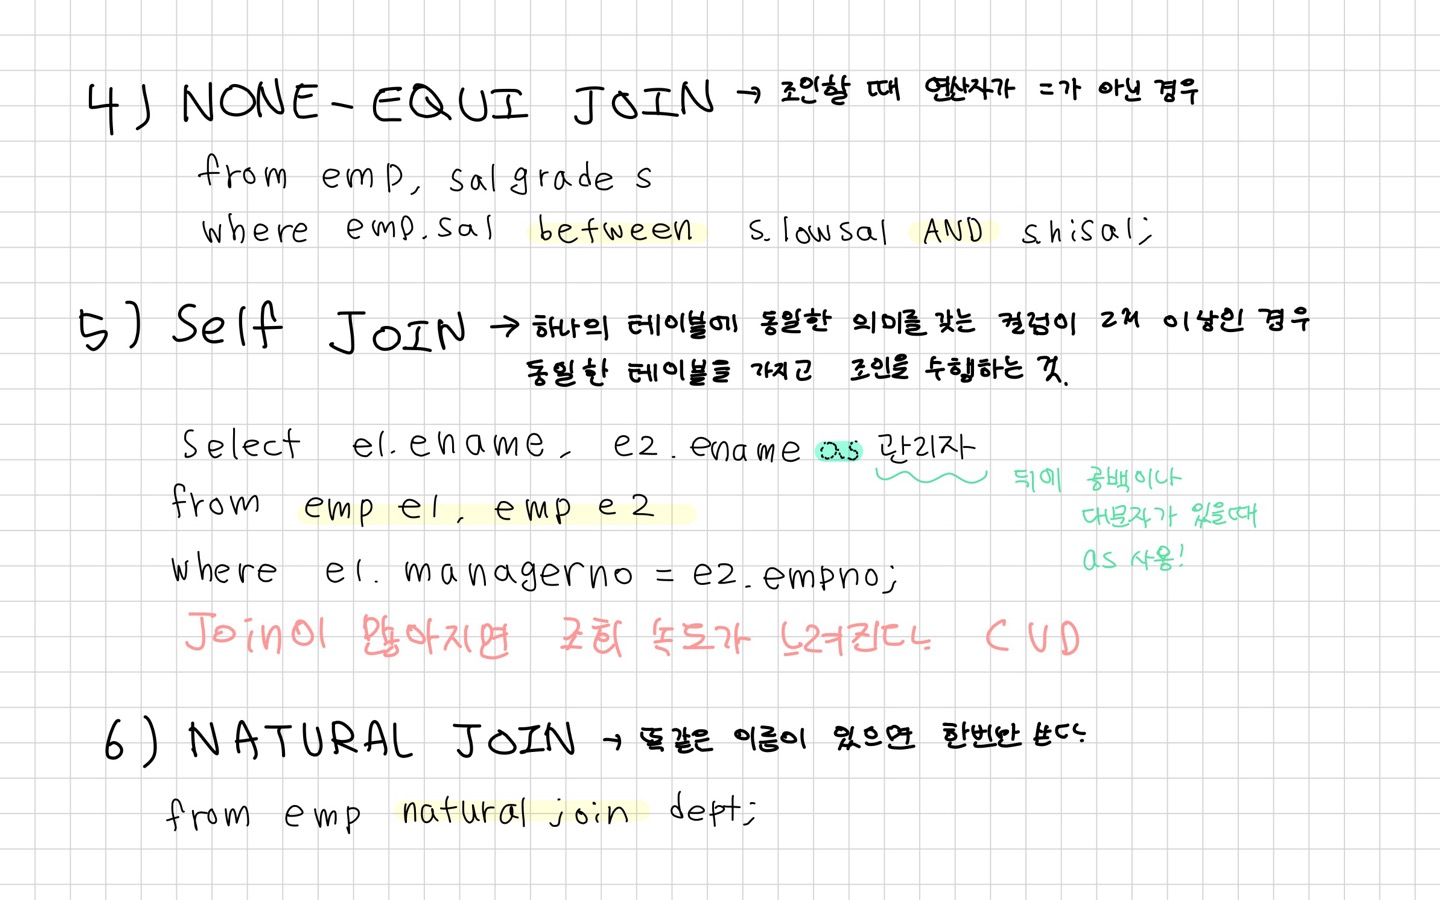 4) NONE-EQUI JOIN → 조인할 때 연산자가 =가 아닌 경우
from emp, salgrade s
where emp.sal between s.lowsal AND s.hisal;
5) Self JOIN → 하나의 테이블에 동일한 의미를 갖는 컬럼이 2개 이상인 경우
동일한 테이블을 가지고 조인을 수행하는 것.
Select e1.ename, e2.ename as 관리자
뒤에 공백이나
from emp e1, emp e2
대문자가 있을때
as 사용!
where e1.managerno = e2.empno;
Join이 많아지면 조회 속도가 느려진다 CUD
6) NATURAL JOIN → 똑같은 이름이 있으면 한번만 쓴다
from emp natural join dept;